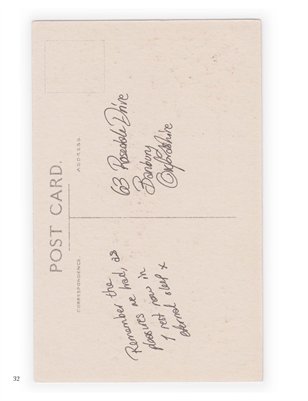 POST CARD.
CORRESPONDENCE
ADDRESS
Remember the
pleasures we had, as
I rest now in
eternal sleep x
63 Rosedale Drive
Banbury
Oxfordshire
32